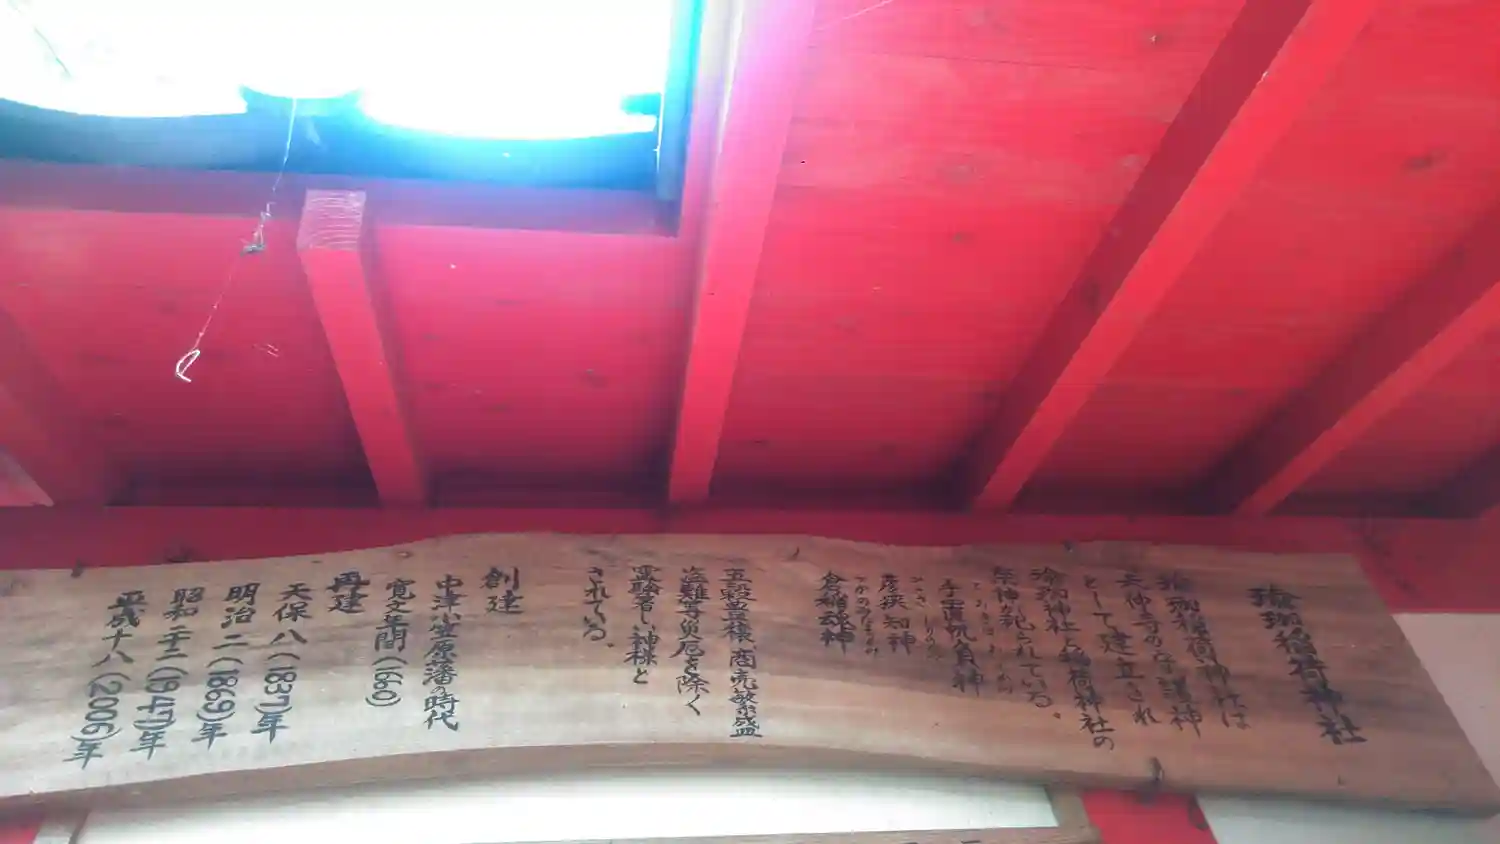 瑜珈稲荷神社
瑜珈稲荷神社は
天仲寺の守護神
として建立され
瑜珈神社と稲荷神社の
祭神が祀られている。
手置帆負神
彦狭知神
倉稲魂神
五穀豊穣、商売繁盛
盗難等災厄を除く
霊験著しい神様と
されている。
創建
中津小笠原藩の時代
寛文年間(1660)
再建
天保八(1837)年
明治二(1869)年
昭和二二(1947)年
平成十八(2006)年